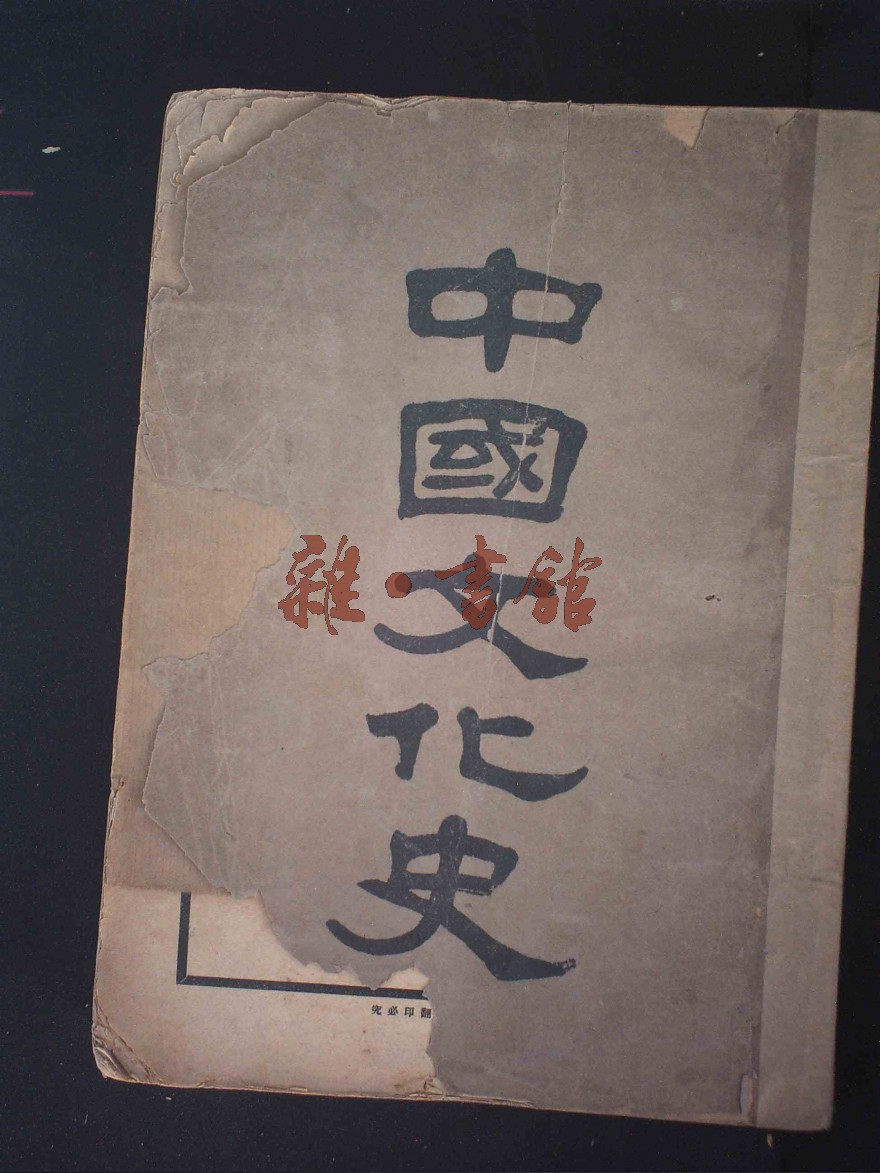 中國文化史
雜·書館
翻印必究